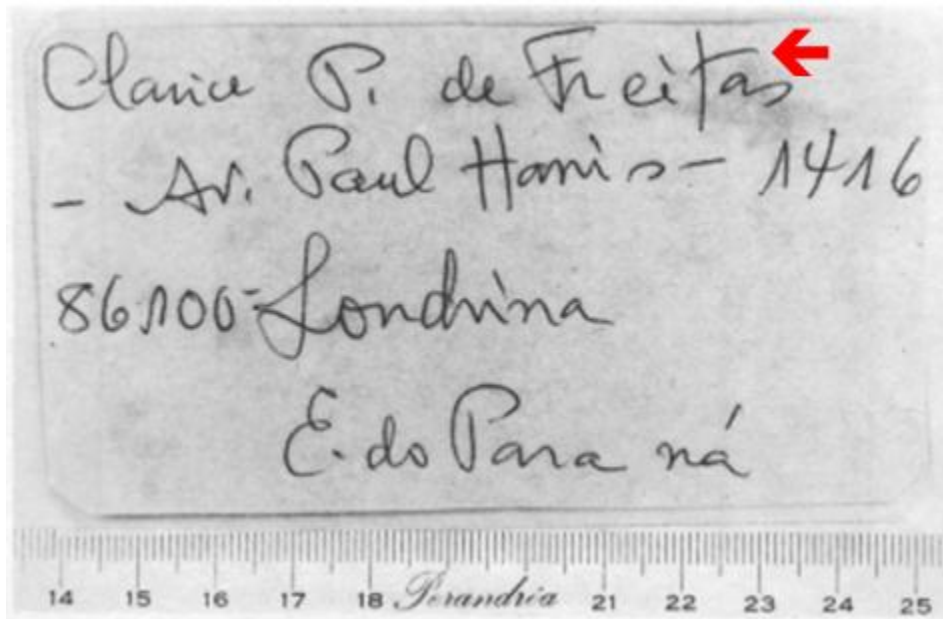 Clarice P. de Freitas
- Av. Paul Harris - 1416
86100-Londrina
E. do Paraná
14 15 16 17 18 Perandréa 21 22 23 24 25